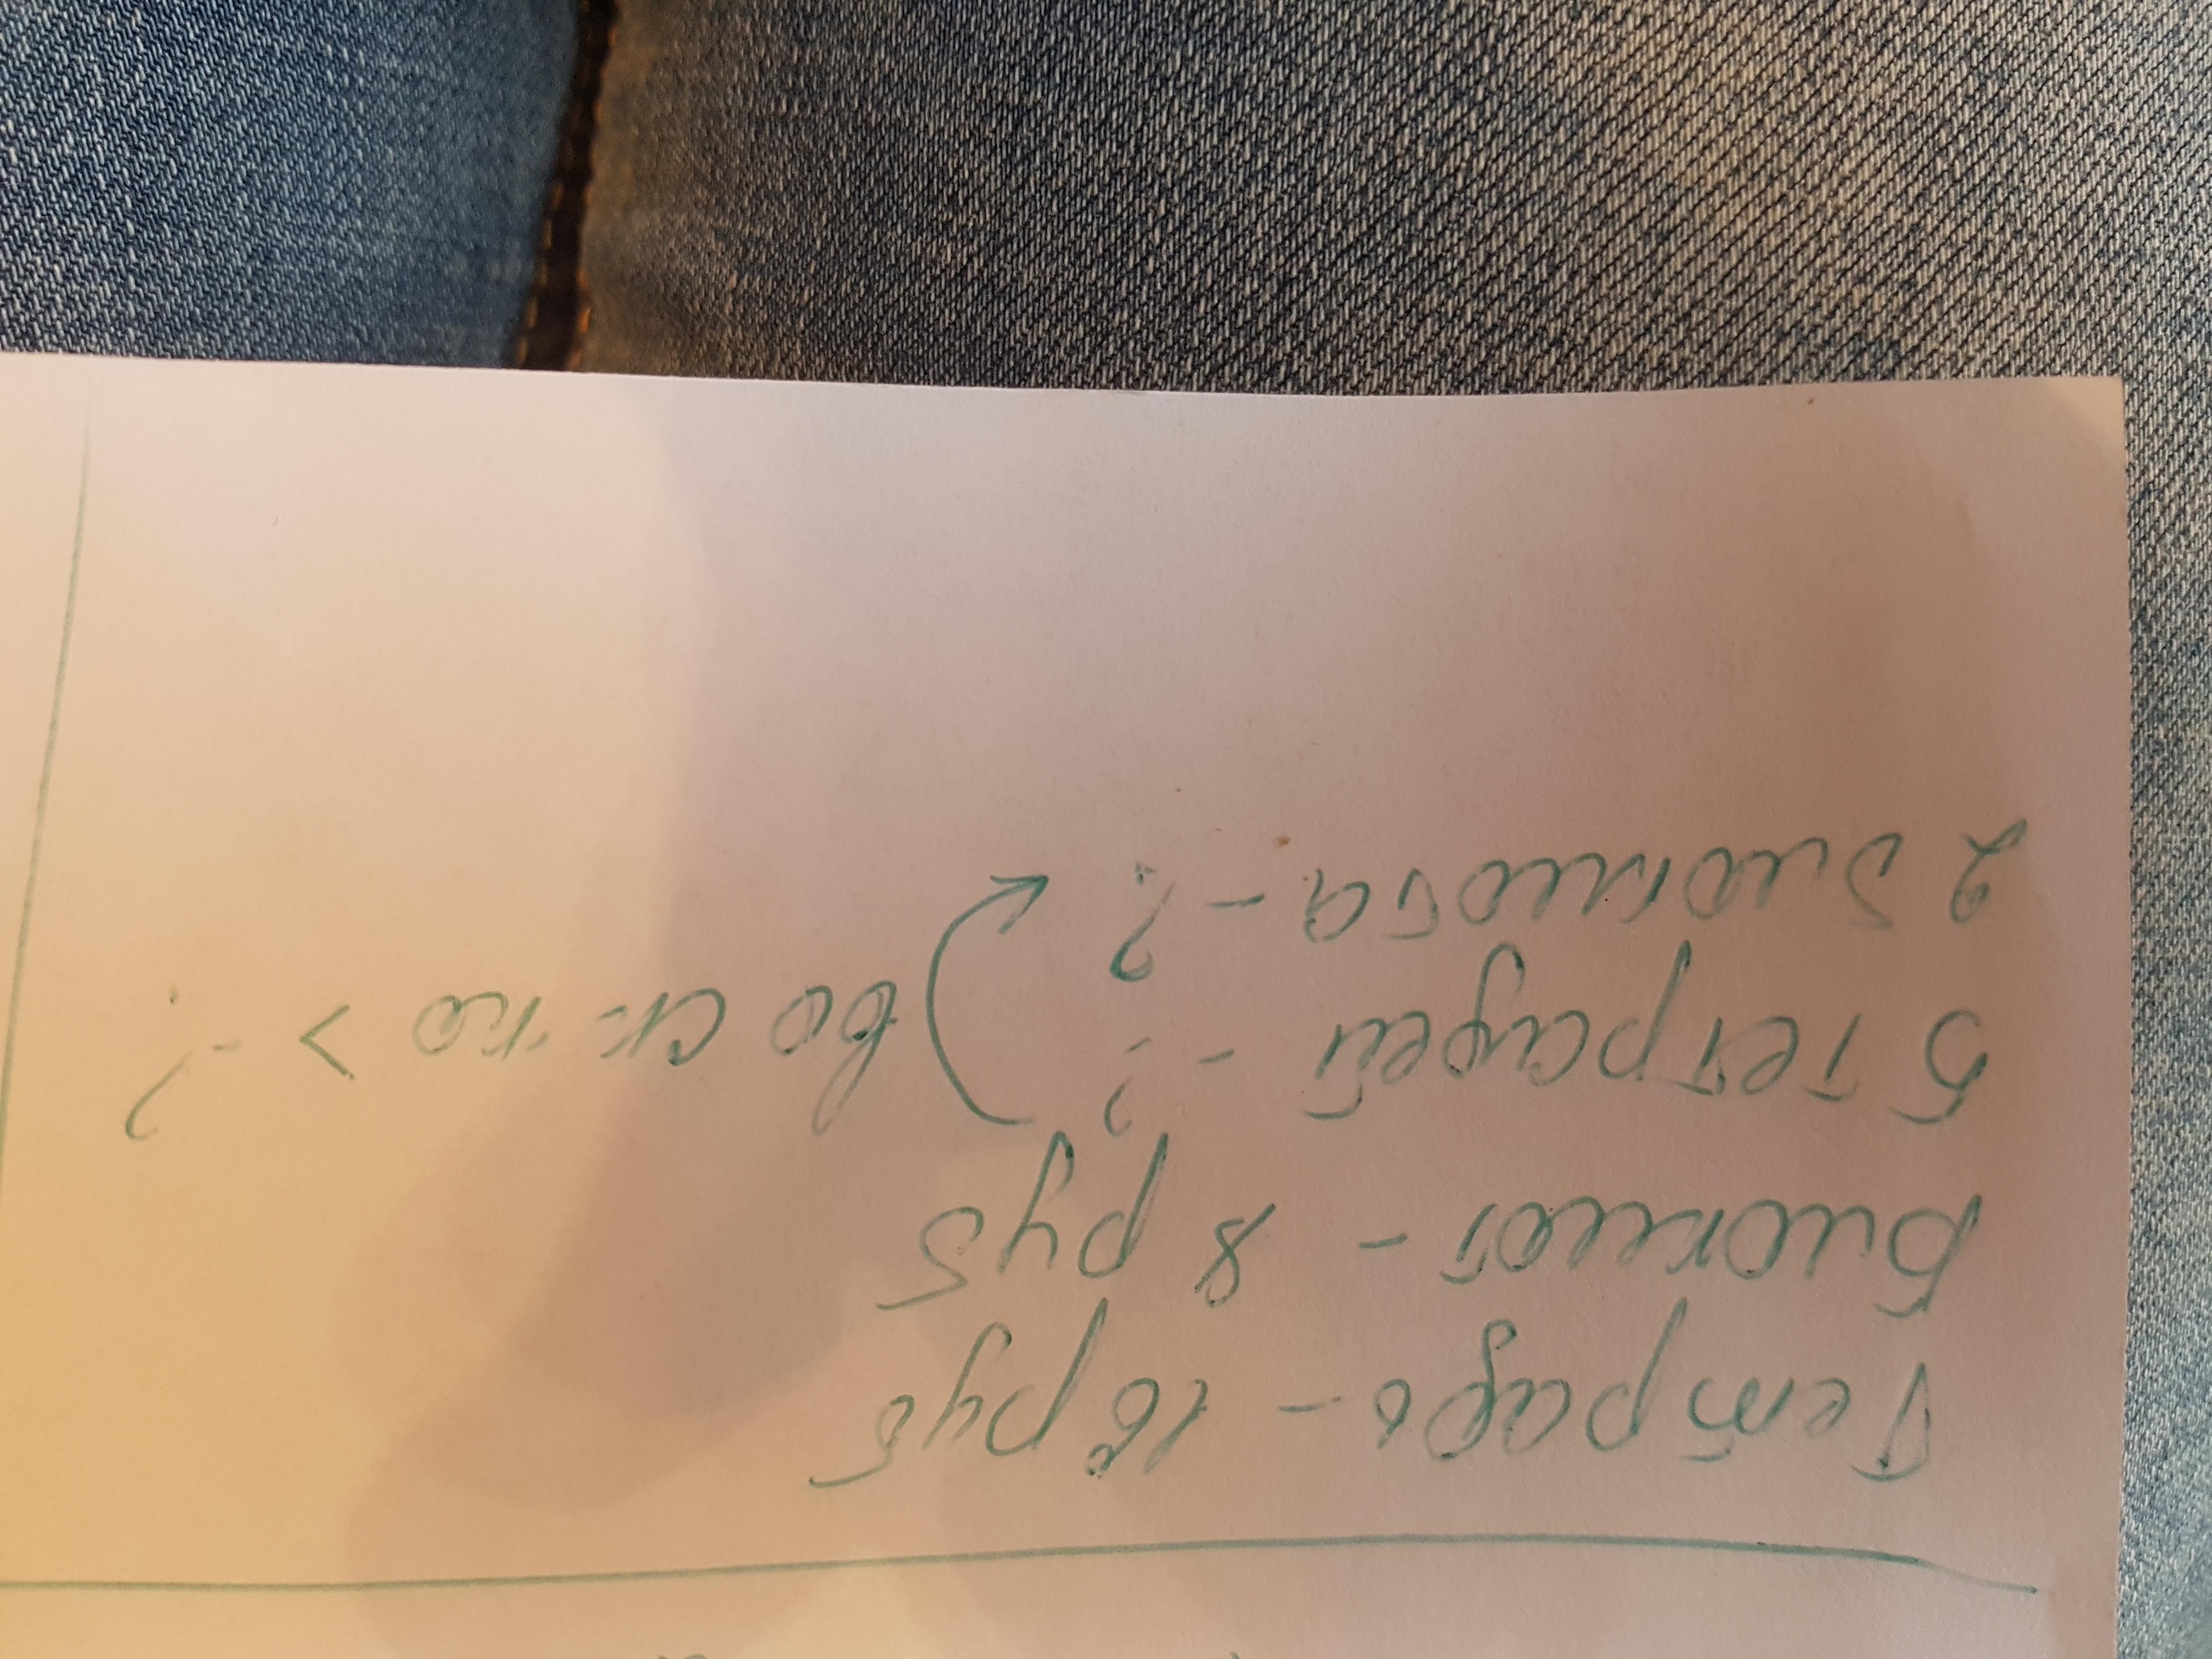 Тетрадь - 16 руб
Блокнот - 8 руб
5 тетрадей - ? во ск-ко > - ?
2 блокнота - ?